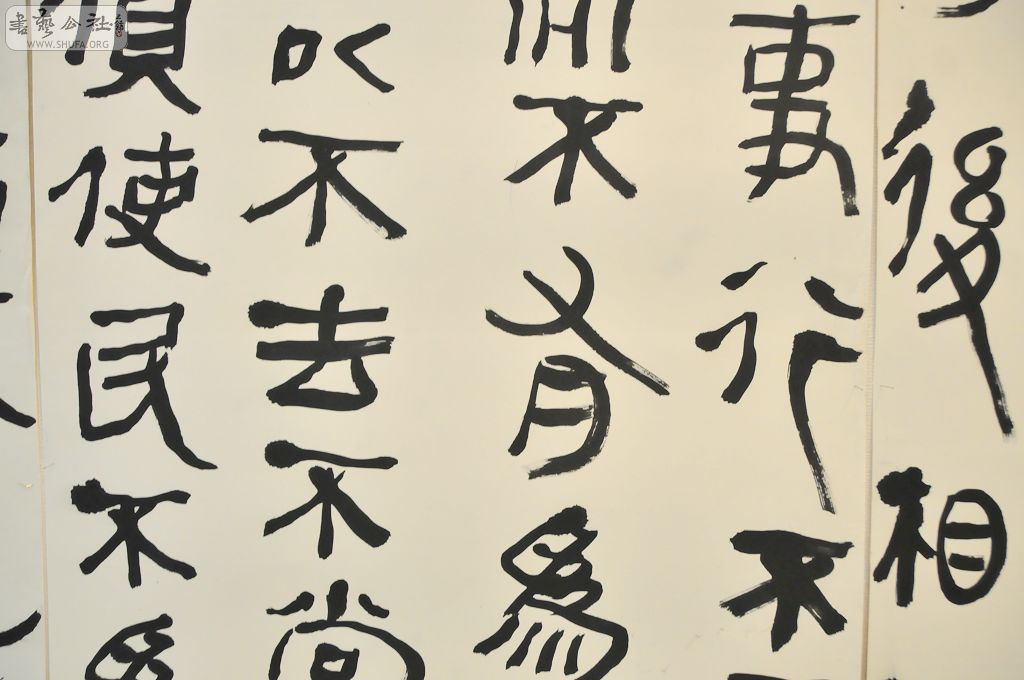 書藝公社
WWW.SHUFA.ORG
後相
事行不
而不有為
以不去不尚
使民不